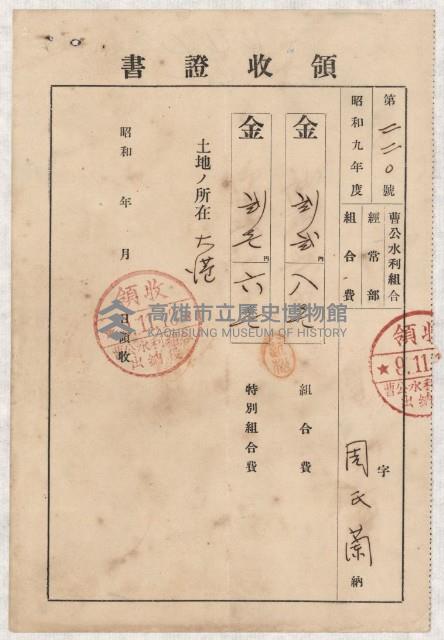 領收證書
第二二〇號
昭和九年度
曹公水利組合
經常部
組合費
字
周氏蘭
納
金
円
八
組合費
金
円
六
特別組合費
土地ノ所在 大港
昭和 年 月 日領收
領收
9.11
曹公水利組合
出納役
領收
9.11.
曹公水利
出納
高雄市立歷史博物館
KAOHSIUNG MUSEUM OF HISTORY